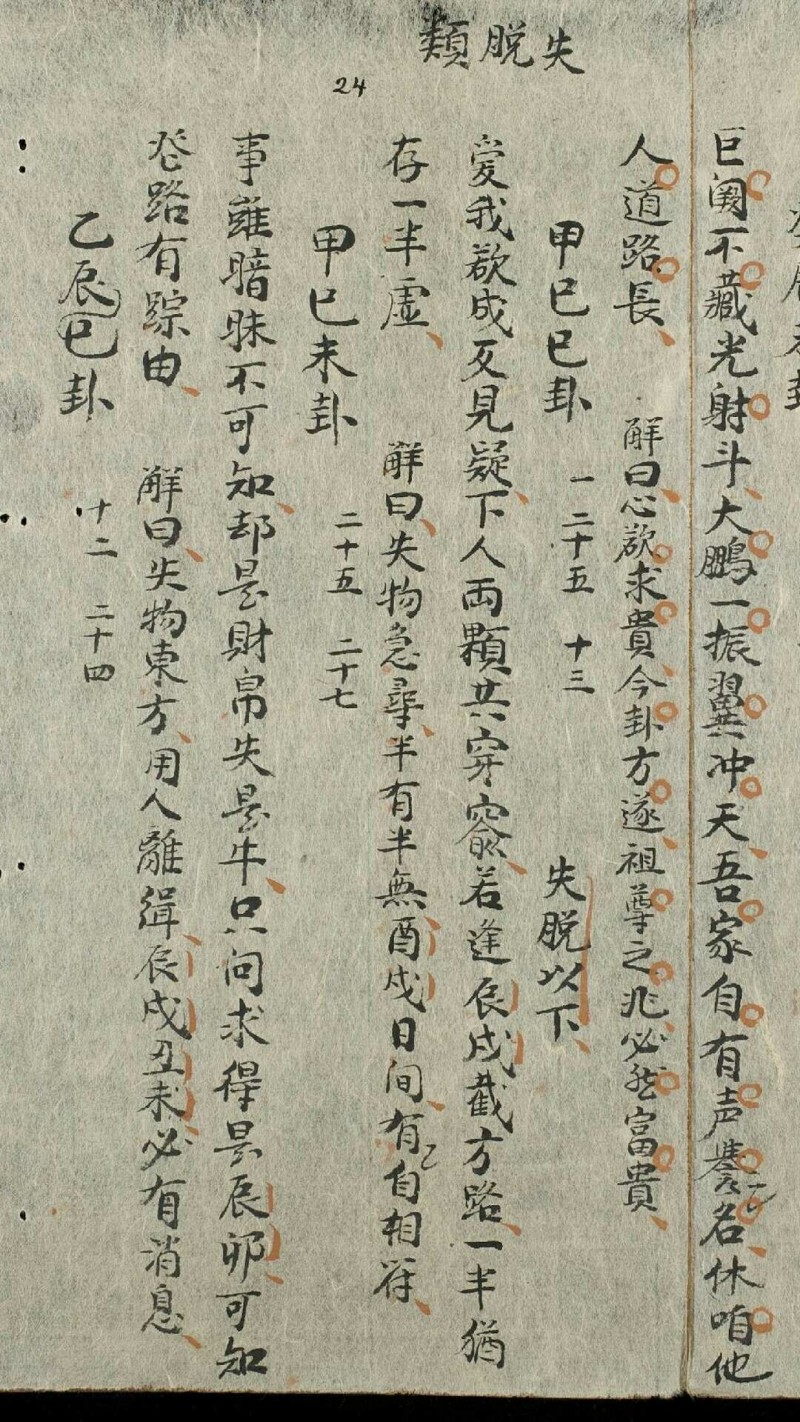 失脫類
24
巨闕不藏光射斗大鵬一振翼冲天吾家自有声誉名休咱他
人道路長　解曰心欲求貴今卦方遂祖尊之兆必然富貴
甲巳巳卦　一　二十五　十三　失脱以下
爱我欲成反見疑下人両顆共穿窬若逢辰戌截方路一半猶
存一半虚　解曰失物急尋半有半無酉戌日间有自相符
甲巳未卦　二十五　二十七
事雖暗昧不可知却是財帛失是牛只问求得是辰卯可知
路有踪由　解曰失物東方用人離缉辰戌丑未必有消息
乙辰巳卦　十二　二十四